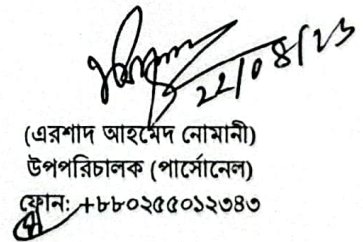 22/08/23
(এরশাদ আহমেদ নোমানী)
উপপরিচালক (পার্সোনেল)
ফোন: +৮৮০২৫৫০১২৩৪৩